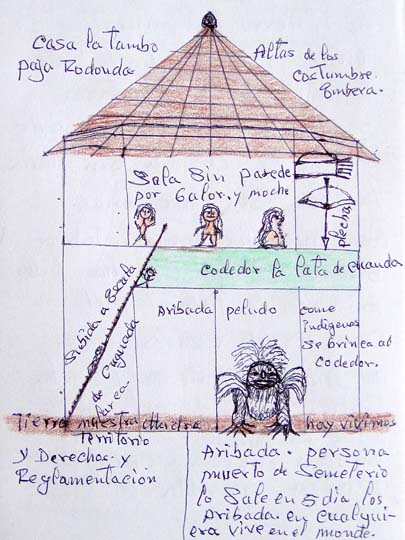 Casa la tambo
paja Rodonda
Altas de los
costumbre.
Embera.
Sala Sin parede
por Calor. y moche
plecha
Codedor la lata de Guauda
Subida a Escala
de Cuguada
Aribada peludo
come
indigenas
se brinca al
Codedor.
Tierra nuestra Madre
territorio
y Derechos y
Reglamentación
hay vivimos
Aribada. persona
muerto de Semeterio
lo Sale en 5 dia. los
Aribada en cualqui-
era vive en el monde.